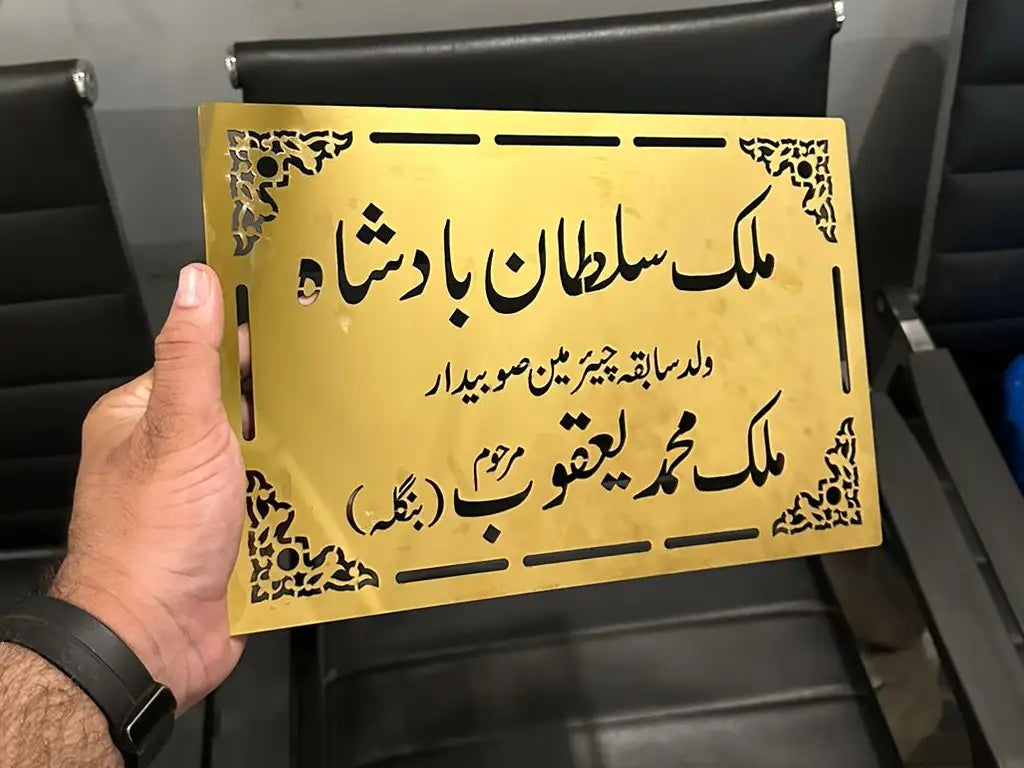 ملک سلطان بادشاہ
ولد سابقہ چیئرمین صوبیدار
ملک محمد یعقوب مرحوم (بنگلہ)